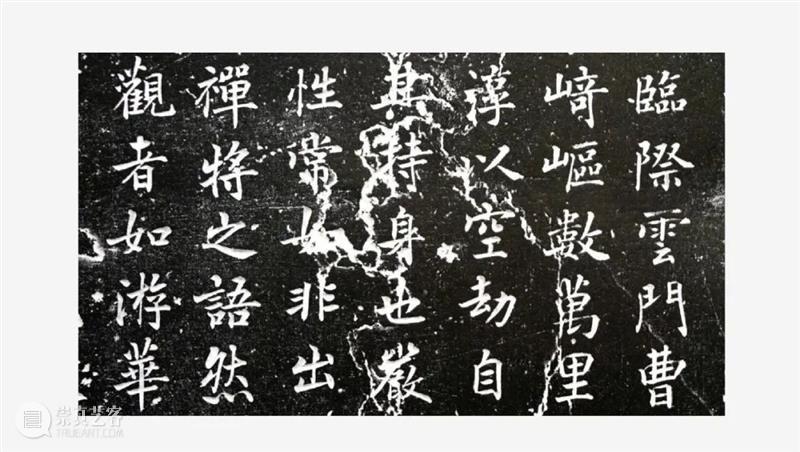 臨際雲門曹
崎嶇數萬里
淳以空劫自
其持身也嚴
性常如非出
禪將之語然
觀者如游華
崇真艺客
TRUEART.COM